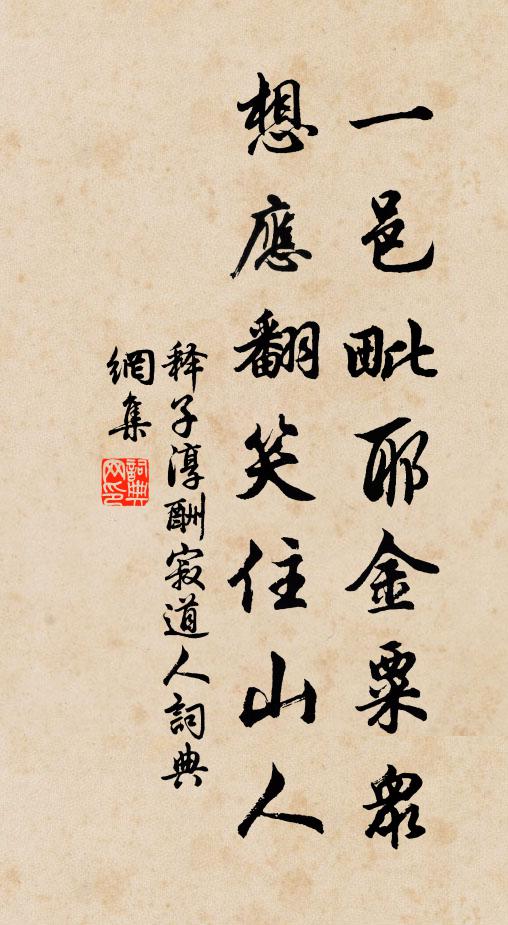 一邑毗耶金粟衆
想應翻笑住山人
释子淳酬寂道人詞典
網集
詞典网印